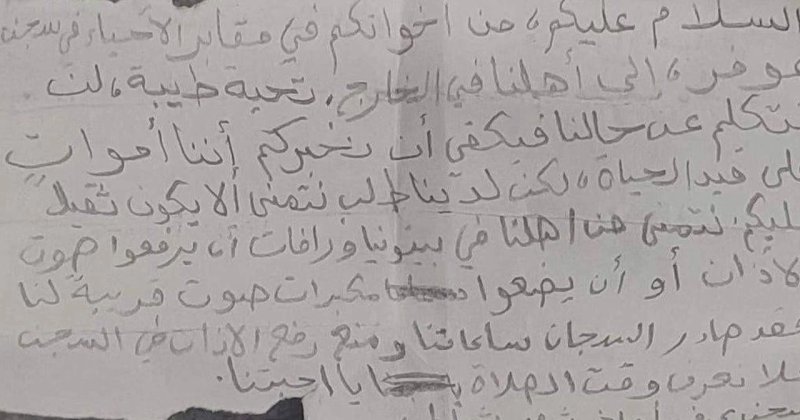 السلام عليكم، من اخوانكم في مقابر الأحياء في سجن
عوفر، إلى أهلنا في الخارج، تحية طيبة، لن
نتكلم عن حالنا فيكفي أن نخبركم أننا أموات
على قيد الحياة، لكن لدينا طلب نتمنى ألا يكون ثقيلاً
عليكم، نتمنى من اهلنا في بيتونيا ورافات أن يرفعوا صوت
الأذان أو أن يضعوا مكبرات صوت قريبة لنا
فقد صادر السجان ساعاتنا ومنع رفع الاذان في السجن
فلا نعرف وقت الصلاة يا احبتنا.